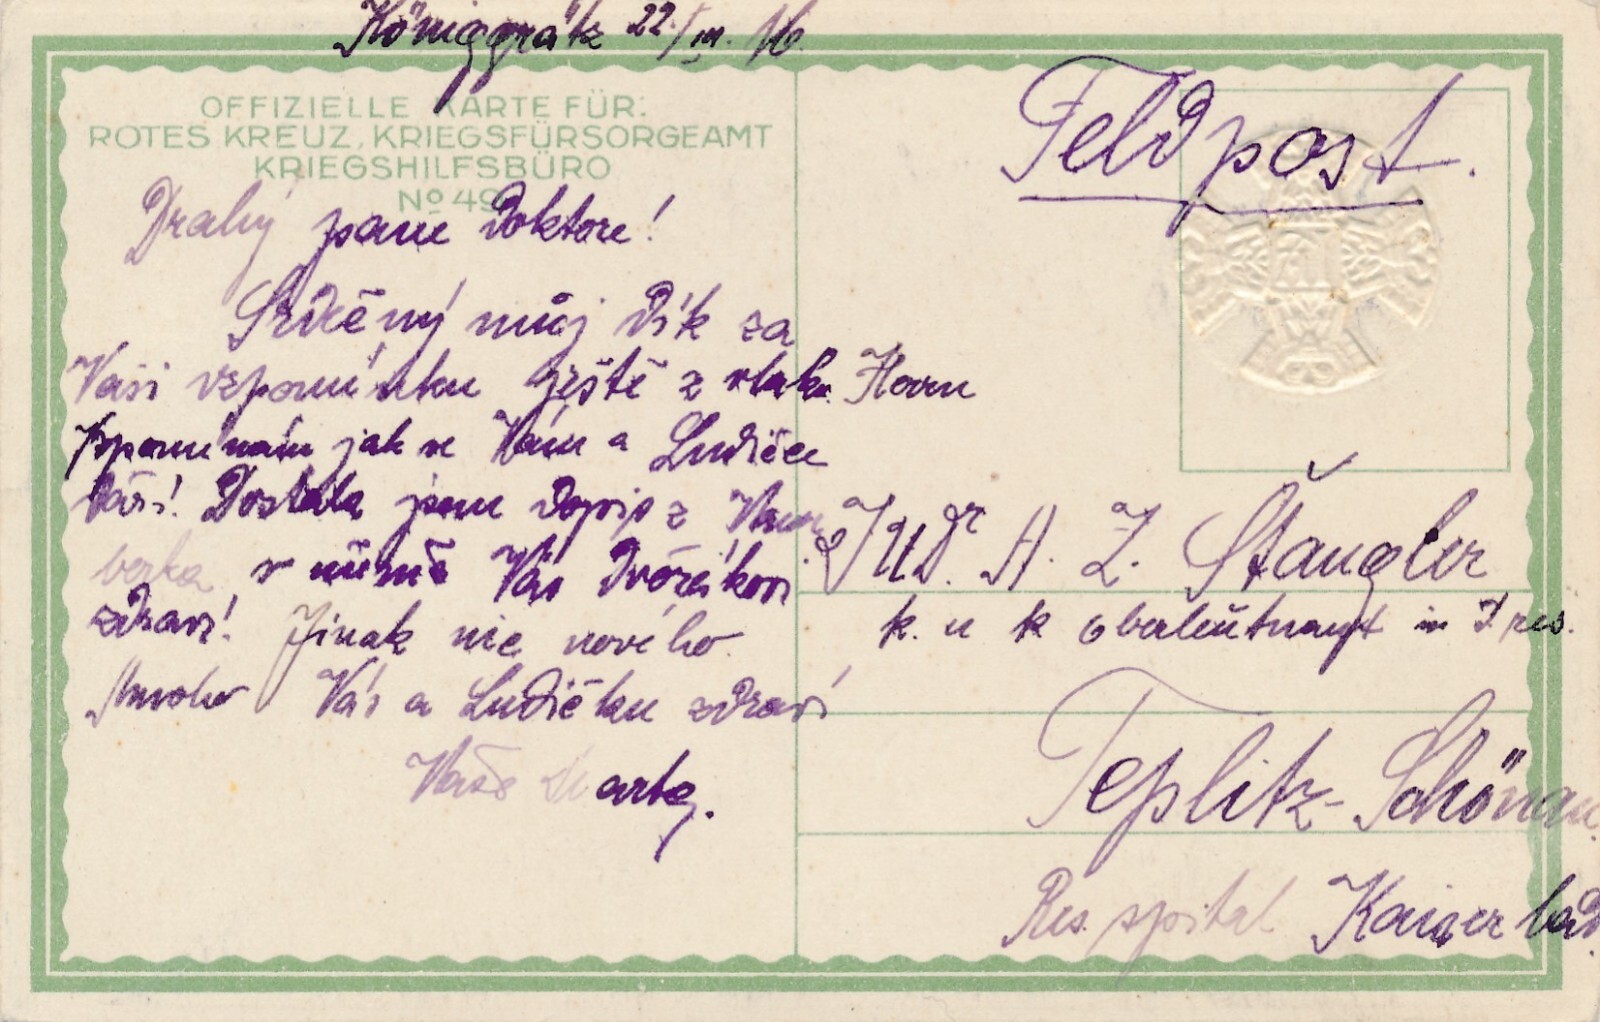 Königgrätz 22/III. 16.
OFFIZIELLE KARTE FÜR:
ROTES KREUZ, KRIEGSFÜRSORGEAMT
KRIEGSHILFSBÜRO
No 49
Drahý pane Doktore!
Srdečný můj dík za
Vaši vzpomínku ještě z vlaku.
Vzpomínám jak se Vám a Ludičce
daří! Dostala jsem dopis z Vam
berka, v němž Vás Dvořákovi
zdraví! Jinak nic nového.
Mnoho Vás a Ludičku zdraví
Vaše Marta.
Feldpost.
Herrn
JUDr. A. Z. Štangler
k. u k Oberleutnant in d res.
Teplitz-Schönau.
Res. spital Kaiserbad.